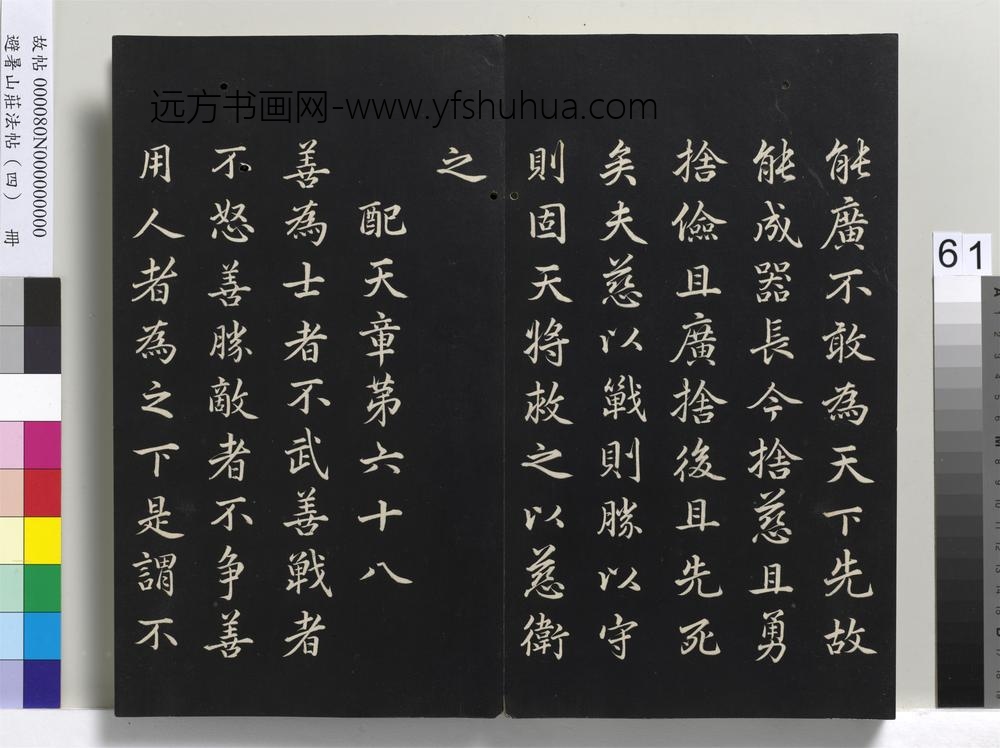 能廣不敢為天下先故
能成器長今捨慈且勇
捨儉且廣捨後且先死
矣夫慈以戰則勝以守
則固天將救之以慈衛
之
配天章第六十八
善為士者不武善戰者
不怒善勝敵者不争善
用人者為之下是謂不
远方书画网-www.yfshuhua.com
故帖 000080N000000000
避暑山莊法帖(四) 冊
61